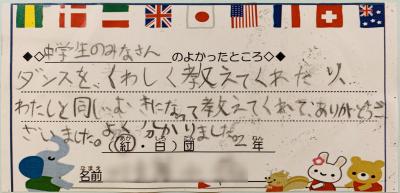 ◆◇中学生のみなさん のよかったところ◇◆
ダンスを、くわしく教えてくれたり、
わたしと同じ
になって教えてくれて、ありがとうご
ざいました。よく分かりました。
(紅・白)団 2年
名前